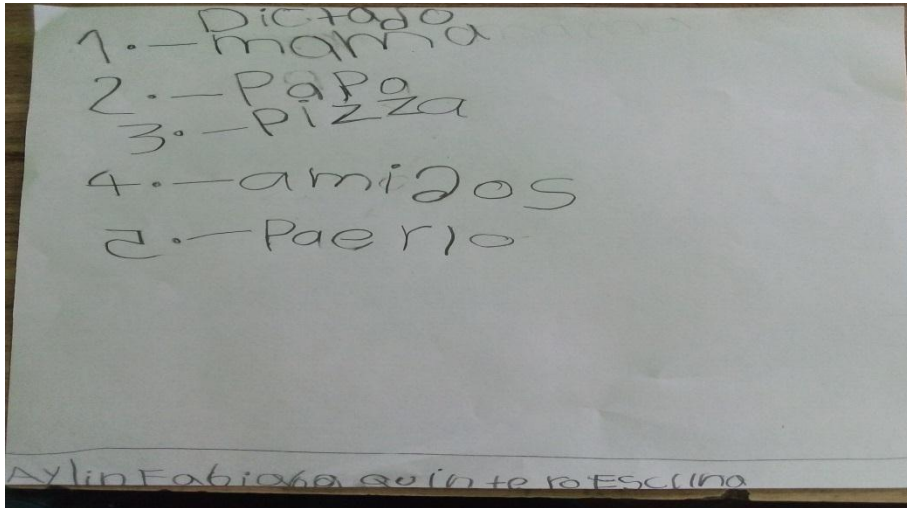 Dictado
1.- mama
2.- Papa
3.- Pizza
4.- amigos
5.- Paerlo
Aylin Fabiola quintero